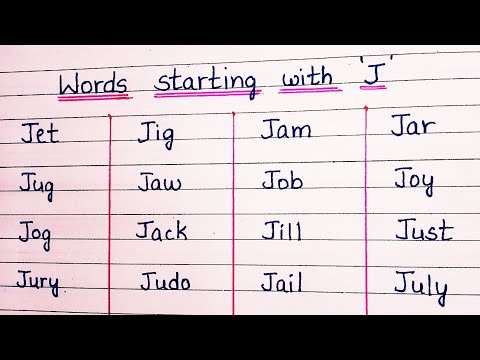 Words starting with 'J'
Jet Jig Jam Jar
Jug Jaw Job Joy
Jog Jack Jill Just
Jury Judo Jail July